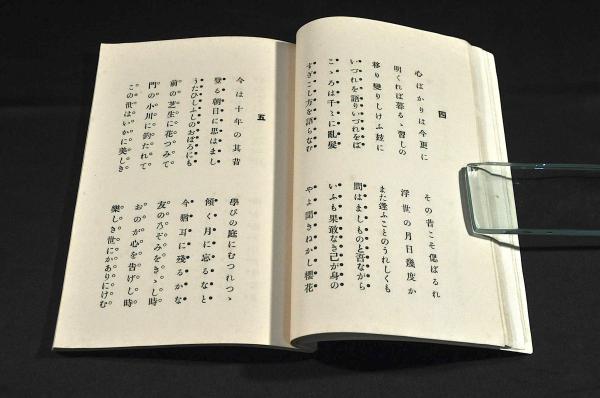 四
心ばかりは今更に
明くれば暮るゝ習しの
移り變りしけふ玆に
いづれを語りいづれをば
こゝろは千々に亂髮
すぎこし方を語らなむ
その昔こそ偲ばるれ
浮世の月日幾度か
また逢ふことのうれしくも
問はましものと吾ながら
いふも果敢なき己が身の
やよ聞きねかし櫻花
五
今は十年の其昔
登る朝日に思はまし
うたひしふしのおぼろにも
前の芝生に花つみて
門の小川に釣たれて
この世はいかに美しき
學びの庭にむつれつゝ
傾く月に忘るなと
今猶耳に殘るかな
友の乃ぞみをきゝし時
おのが心を告げし時
樂しき世にかありにけむ